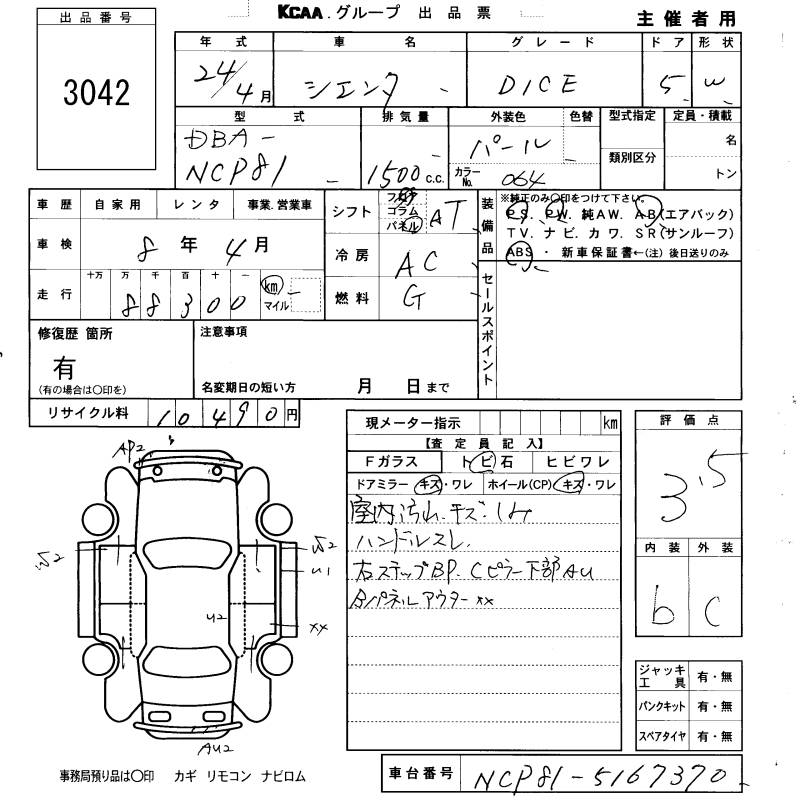 KCAA.グループ 出品票
主催者用
出品番号
3042
年式 車名 グレード ドア 形状
24/4月 シエンタ DICE 5 W
型式 排気量 外装色 色替 型式指定 定員・積載
DBA-
NCP81 1500 c.c. パール
カラーNo. 064
類別区分
名
トン
車歴 自家用 レンタ 事業.営業車
車検 8年4月
走行 十万 万 千 百 十 一
88300 km マイル
シフト フロア コラム パネル AT
冷房 AC
燃料 G
装備品
※純正のみ〇印をつけて下さい。
PS. PW. 純AW. AB(エアバック)
TV. ナビ. カワ. SR(サンルーフ)
ABS ・ 新車保証書←(注) 後日送りのみ
セールスポイント
修復歴 箇所
有
(有の場合は〇印を)
注意事項
名変期日の短い方 月 日まで
リサイクル料 10490円
現メーター指示 km
【査定員記入】
Fガラス トビ石 ヒビワレ
ドアミラー キズ・ワレ ホイール(CP) キズ・ワレ
室内汚れ.キズ.シミ
ハンドルスレ.
右ステップBP. Cピラー下部AU
Bパネルアウターxx
評価点
3.5
内装 外装
b C
ジャッキ工具 有・無
パンクキット 有・無
スペアタイヤ 有・無
AP2
U2
U1
U2
XX
AU2
事務局預り品は〇印 カギ リモコン ナビロム
車台番号 NCP81-5167370